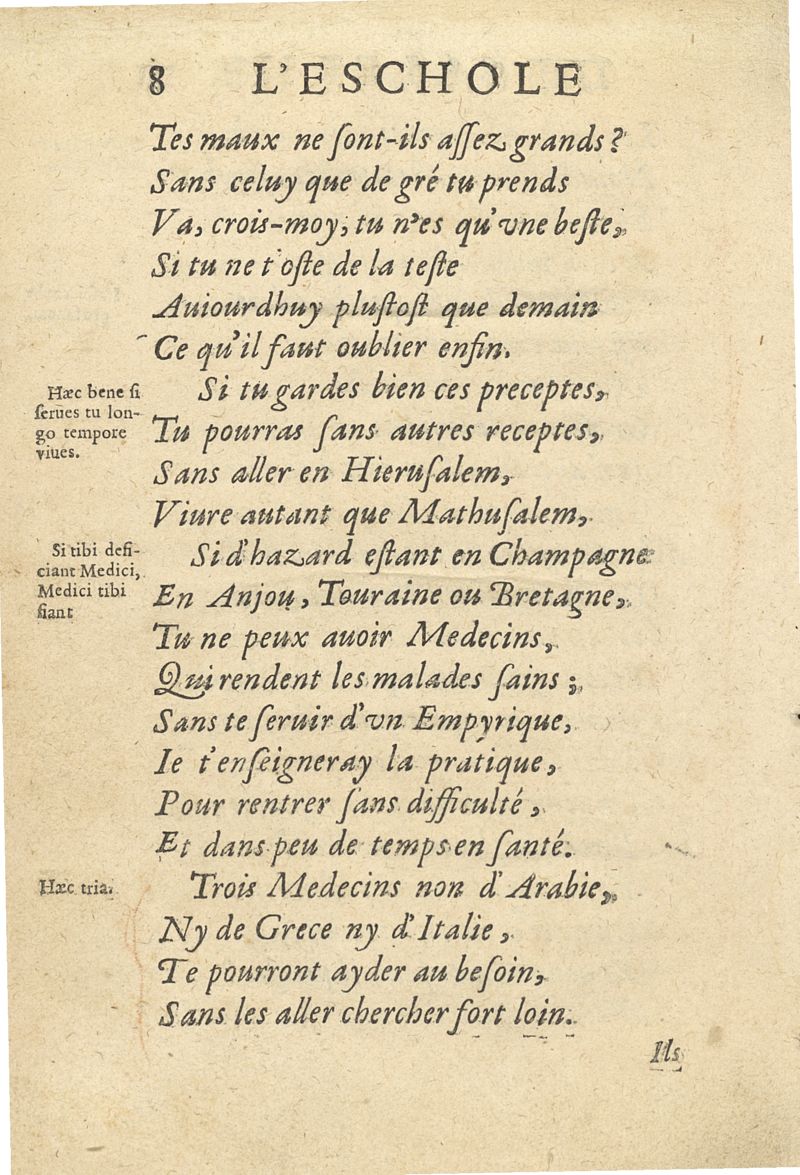 8 L'ESCHOLE
Tes maux ne ſont-ils aſſez grands ?
Sans celuy que de gré tu prends
Va, crois-moy, tu n'es qu'vne beſte,
Si tu ne t'oſte de la teſte
Auiourdhuy pluſtoſt que demain
Ce qu'il faut oublier enfin.
Hæc bene ſi
ſerues tu lon-
go tempore
viues.
Si tu gardes bien ces preceptes,
Tu pourras ſans autres receptes,
Sans aller en Hieruſalem,
Viure autant que Mathuſalem,
Si tibi defi-
ciant Medici,
Medici tibi
fiant
Si d'hazard eſtant en Champagne
En Anjou, Touraine ou Bretagne,
Tu ne peux auoir Medecins,
Qui rendent les malades ſains ;
Sans te ſeruir d'vn Empyrique,
Ie t'enſeigneray la pratique,
Pour rentrer ſans difficulté,
Et dans peu de temps en ſanté.
Hæc tria.
Trois Medecins non d'Arabie,
Ny de Grece ny d'Italie,
Te pourront ayder au beſoin,
Sans les aller chercher fort loin.
Ils